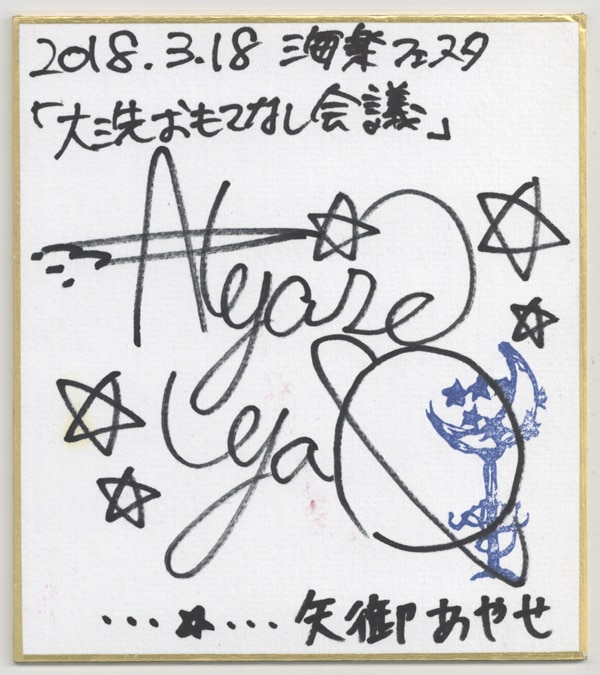 2018.3.18 海楽フェスタ
「大洗おもてなし会議」
Ayase
Ya
...☆... 矢御あやせ